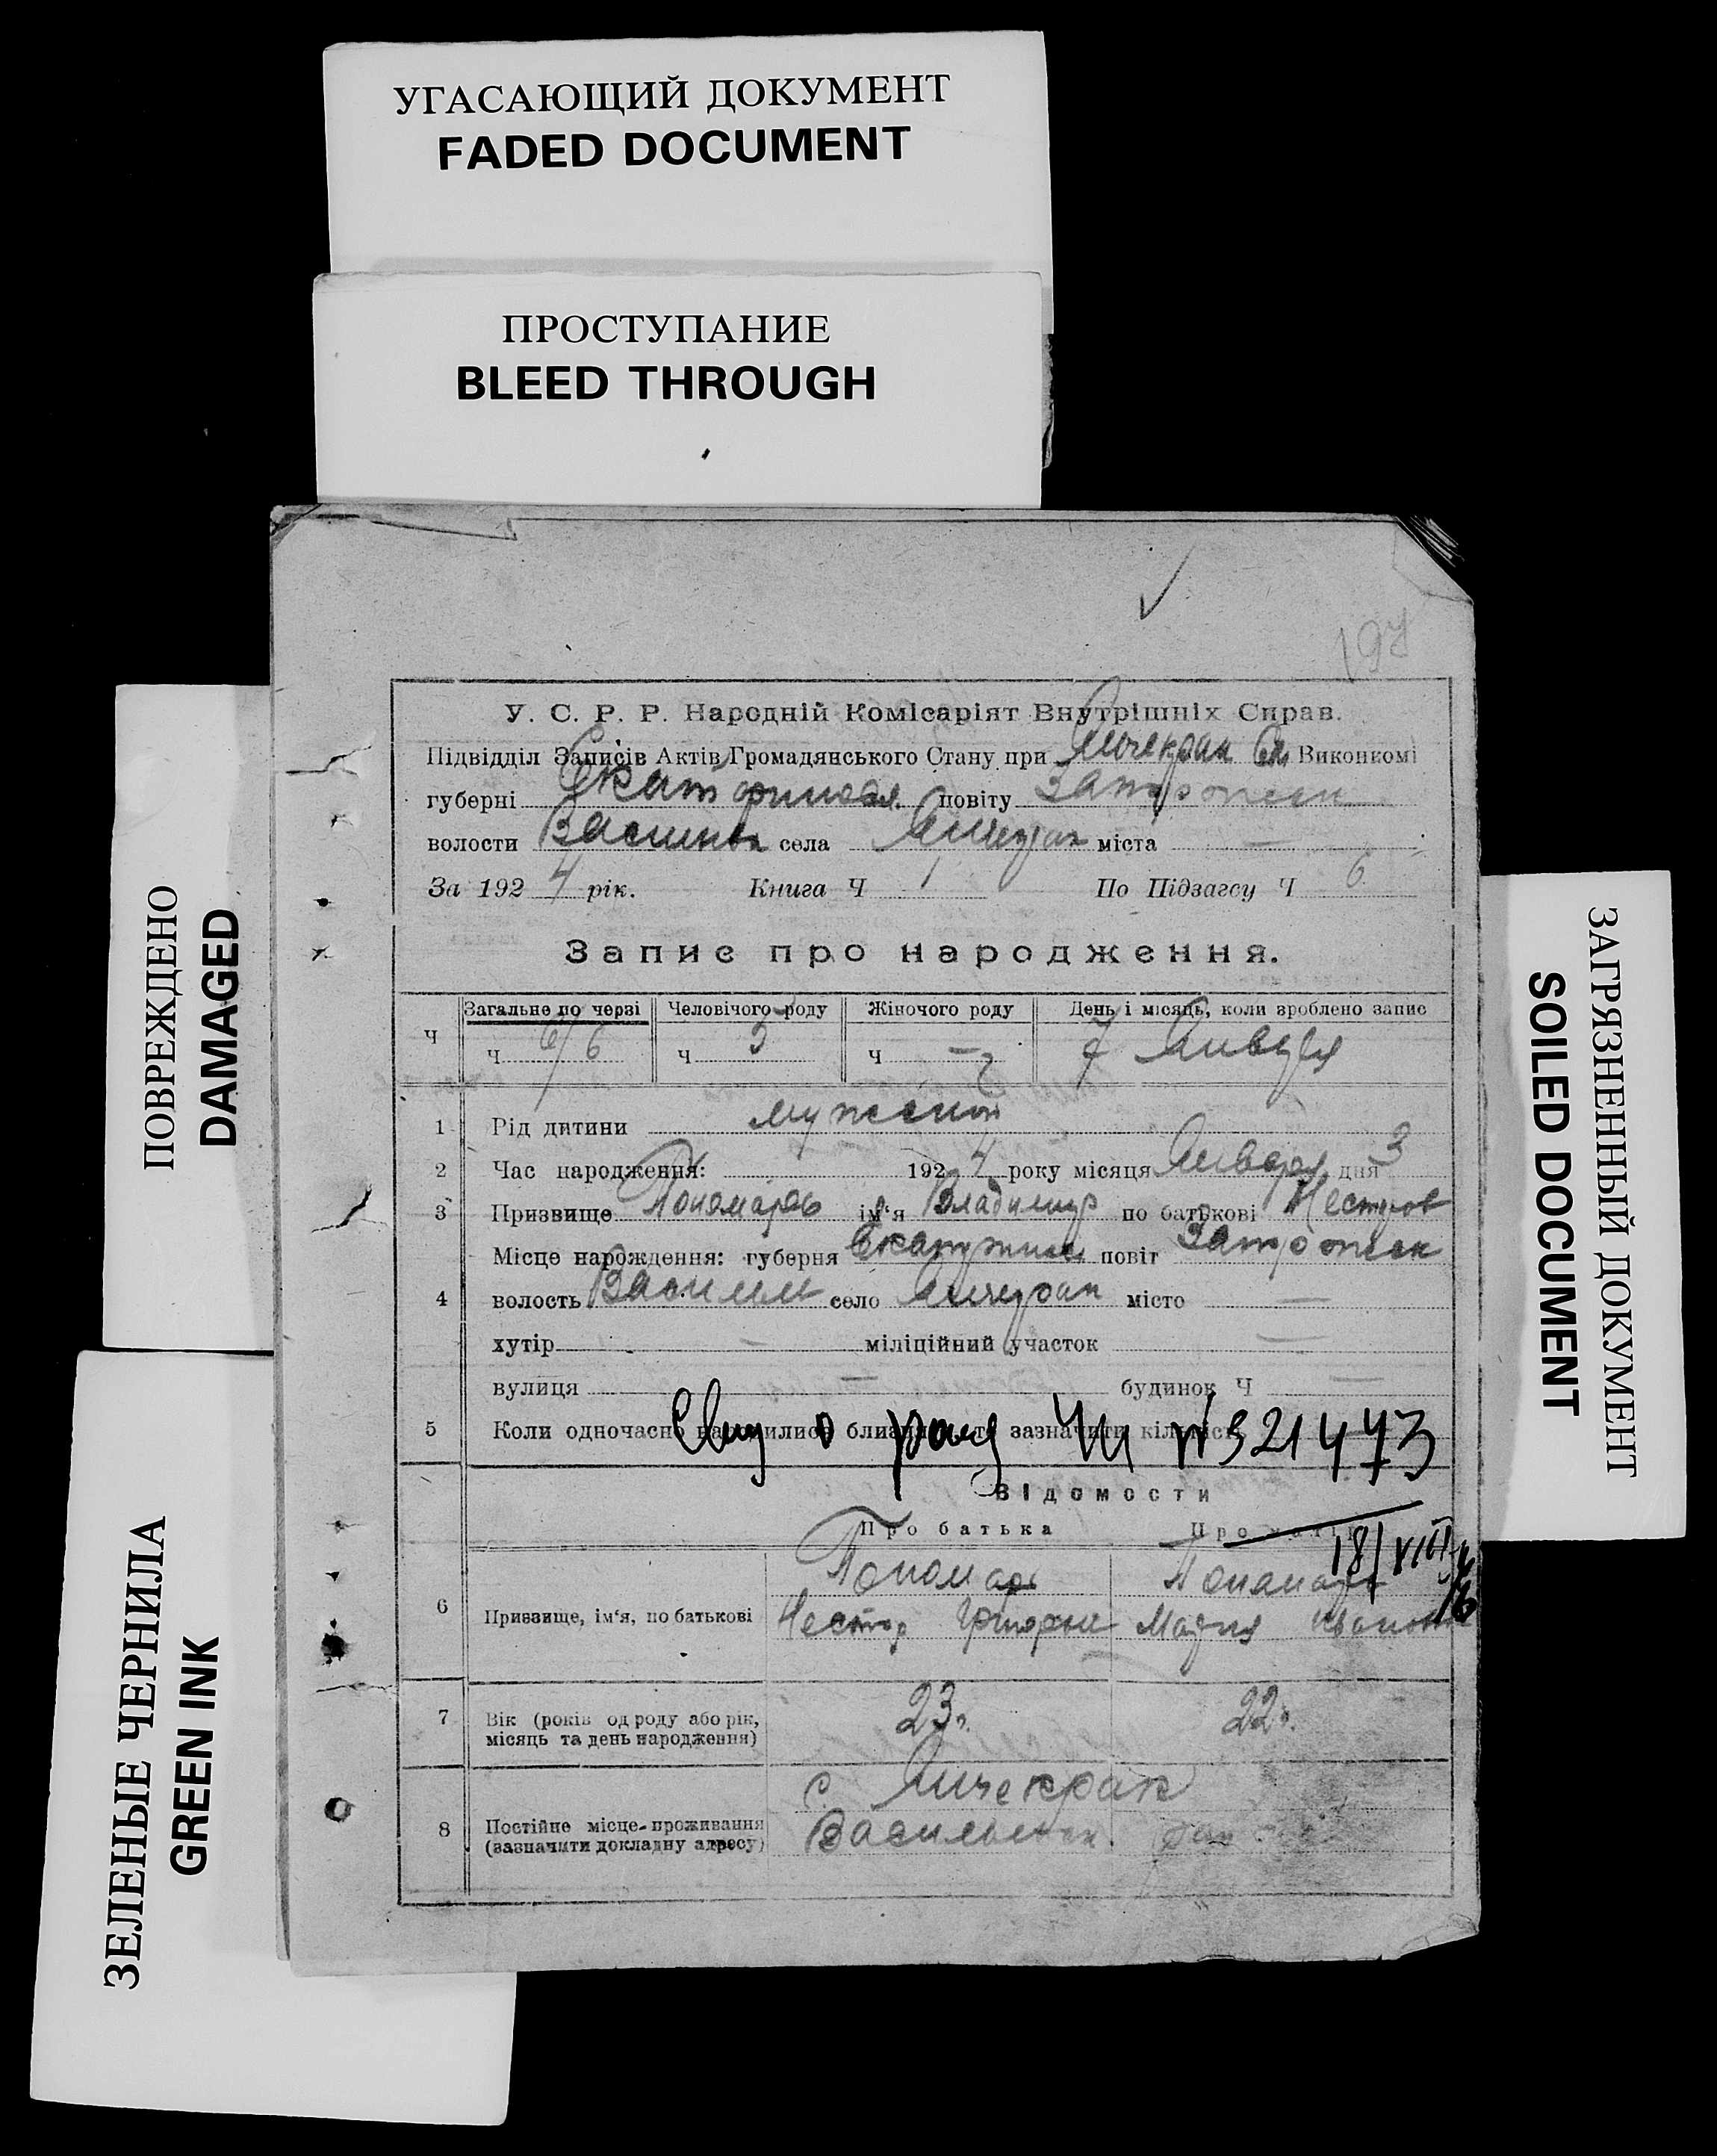 УГАСАЮЩИЙ ДОКУМЕНТ
FADED DOCUMENT
ПРОСТУПАНИЕ
BLEED THROUGH
ПОВРЕЖДЕНО
DAMAGED
ЗЕЛЕНЫЕ ЧЕРНИЛА
GREEN INK
ЗАГРЯЗНЕННЫЙ ДОКУМЕНТ
SOILED DOCUMENT
197
У. С. Р. Р. Народній Комісаріят Внутрішніх Справ.
Підвідділ Записів Актів Громадянського Стану при Янчекрак Виконкомі
губерні повіту
волости села Янчекрак міста —
За 192 4 рік. Книга Ч 1 По Підзагсу Ч 6
Запис про народження.
Загальне по черзі Человічого роду Жіночого роду День і місяць, коли зроблено запис
Ч ч 6/6 ч 5 ч — 7 Января
1 Рід дитини мужской
2 Час народження: 192 4 року місяця Января дня 3
3 Призвище Пономарь ім'я Владимир по батькові Нестеров
Місце нарождення: губерня повіт
4 волость село місто —
хутір — міліційний участок —
вулиця — будинок Ч —
5 Коли одночасно народилися зазначити
№ 321473
Відомости
Про батька Про матір
18/VIII
6 Призвище, ім'я, по батькові Пономарь Пономарь
Нестор Григорьев Мария Ивановна
7 Вік (років од роду або рік, місяць та день народження) 23 г. 22 г.
8 Постійне місце проживання (зазначити докладну адресу) с. Янчекрак